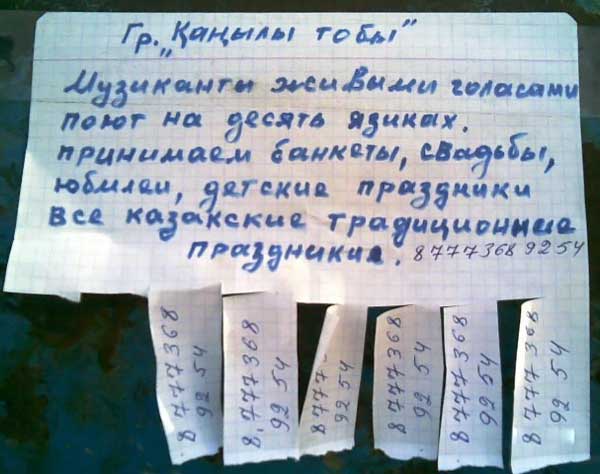 Гр. „Қаңылы тобы"
Музиканты живыми голасами
поют на десять язиках.
принимаем банкеты, свадьбы,
юбилеи, детские праздники
все казакские традиционные
праздникие. 8777368 92 54
8 777368
92 54
8.777368
92 54
8777-
92 54
8777368
92 54
8 777368
92 54
8 777 368
92 54